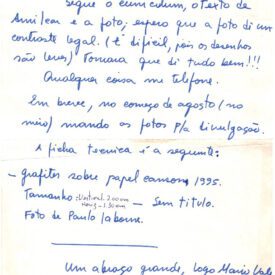 Segue o curriculum, o texto de
Amilcar e a foto, espero que a foto dê um
contraste legal. (é difícil, pois os desenhos
são leves) Tomara que dê tudo bem!!!
Qualquer coisa me telefone.
Em breve, no começo de agosto (no
meio) mando as fotos p/a divulgação.
A ficha tecnica é a seguinte:
- grafites sobre papel canson, 1995.
Tamanho: Vertical. 2.00 cm
Horiz - 1.50 cm
- Sem título.
Foto de Paulo
Um abraço grande, logo Mario